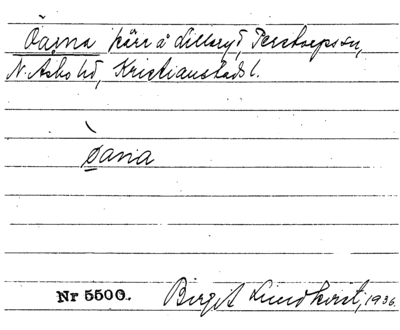 Öarna kärr å Lillaryd, Perstorps sn,
N. Åsbo hd, Kristianstads l.
òa₍rna
Nr 5500. Birgit Lundkvist, 1936.